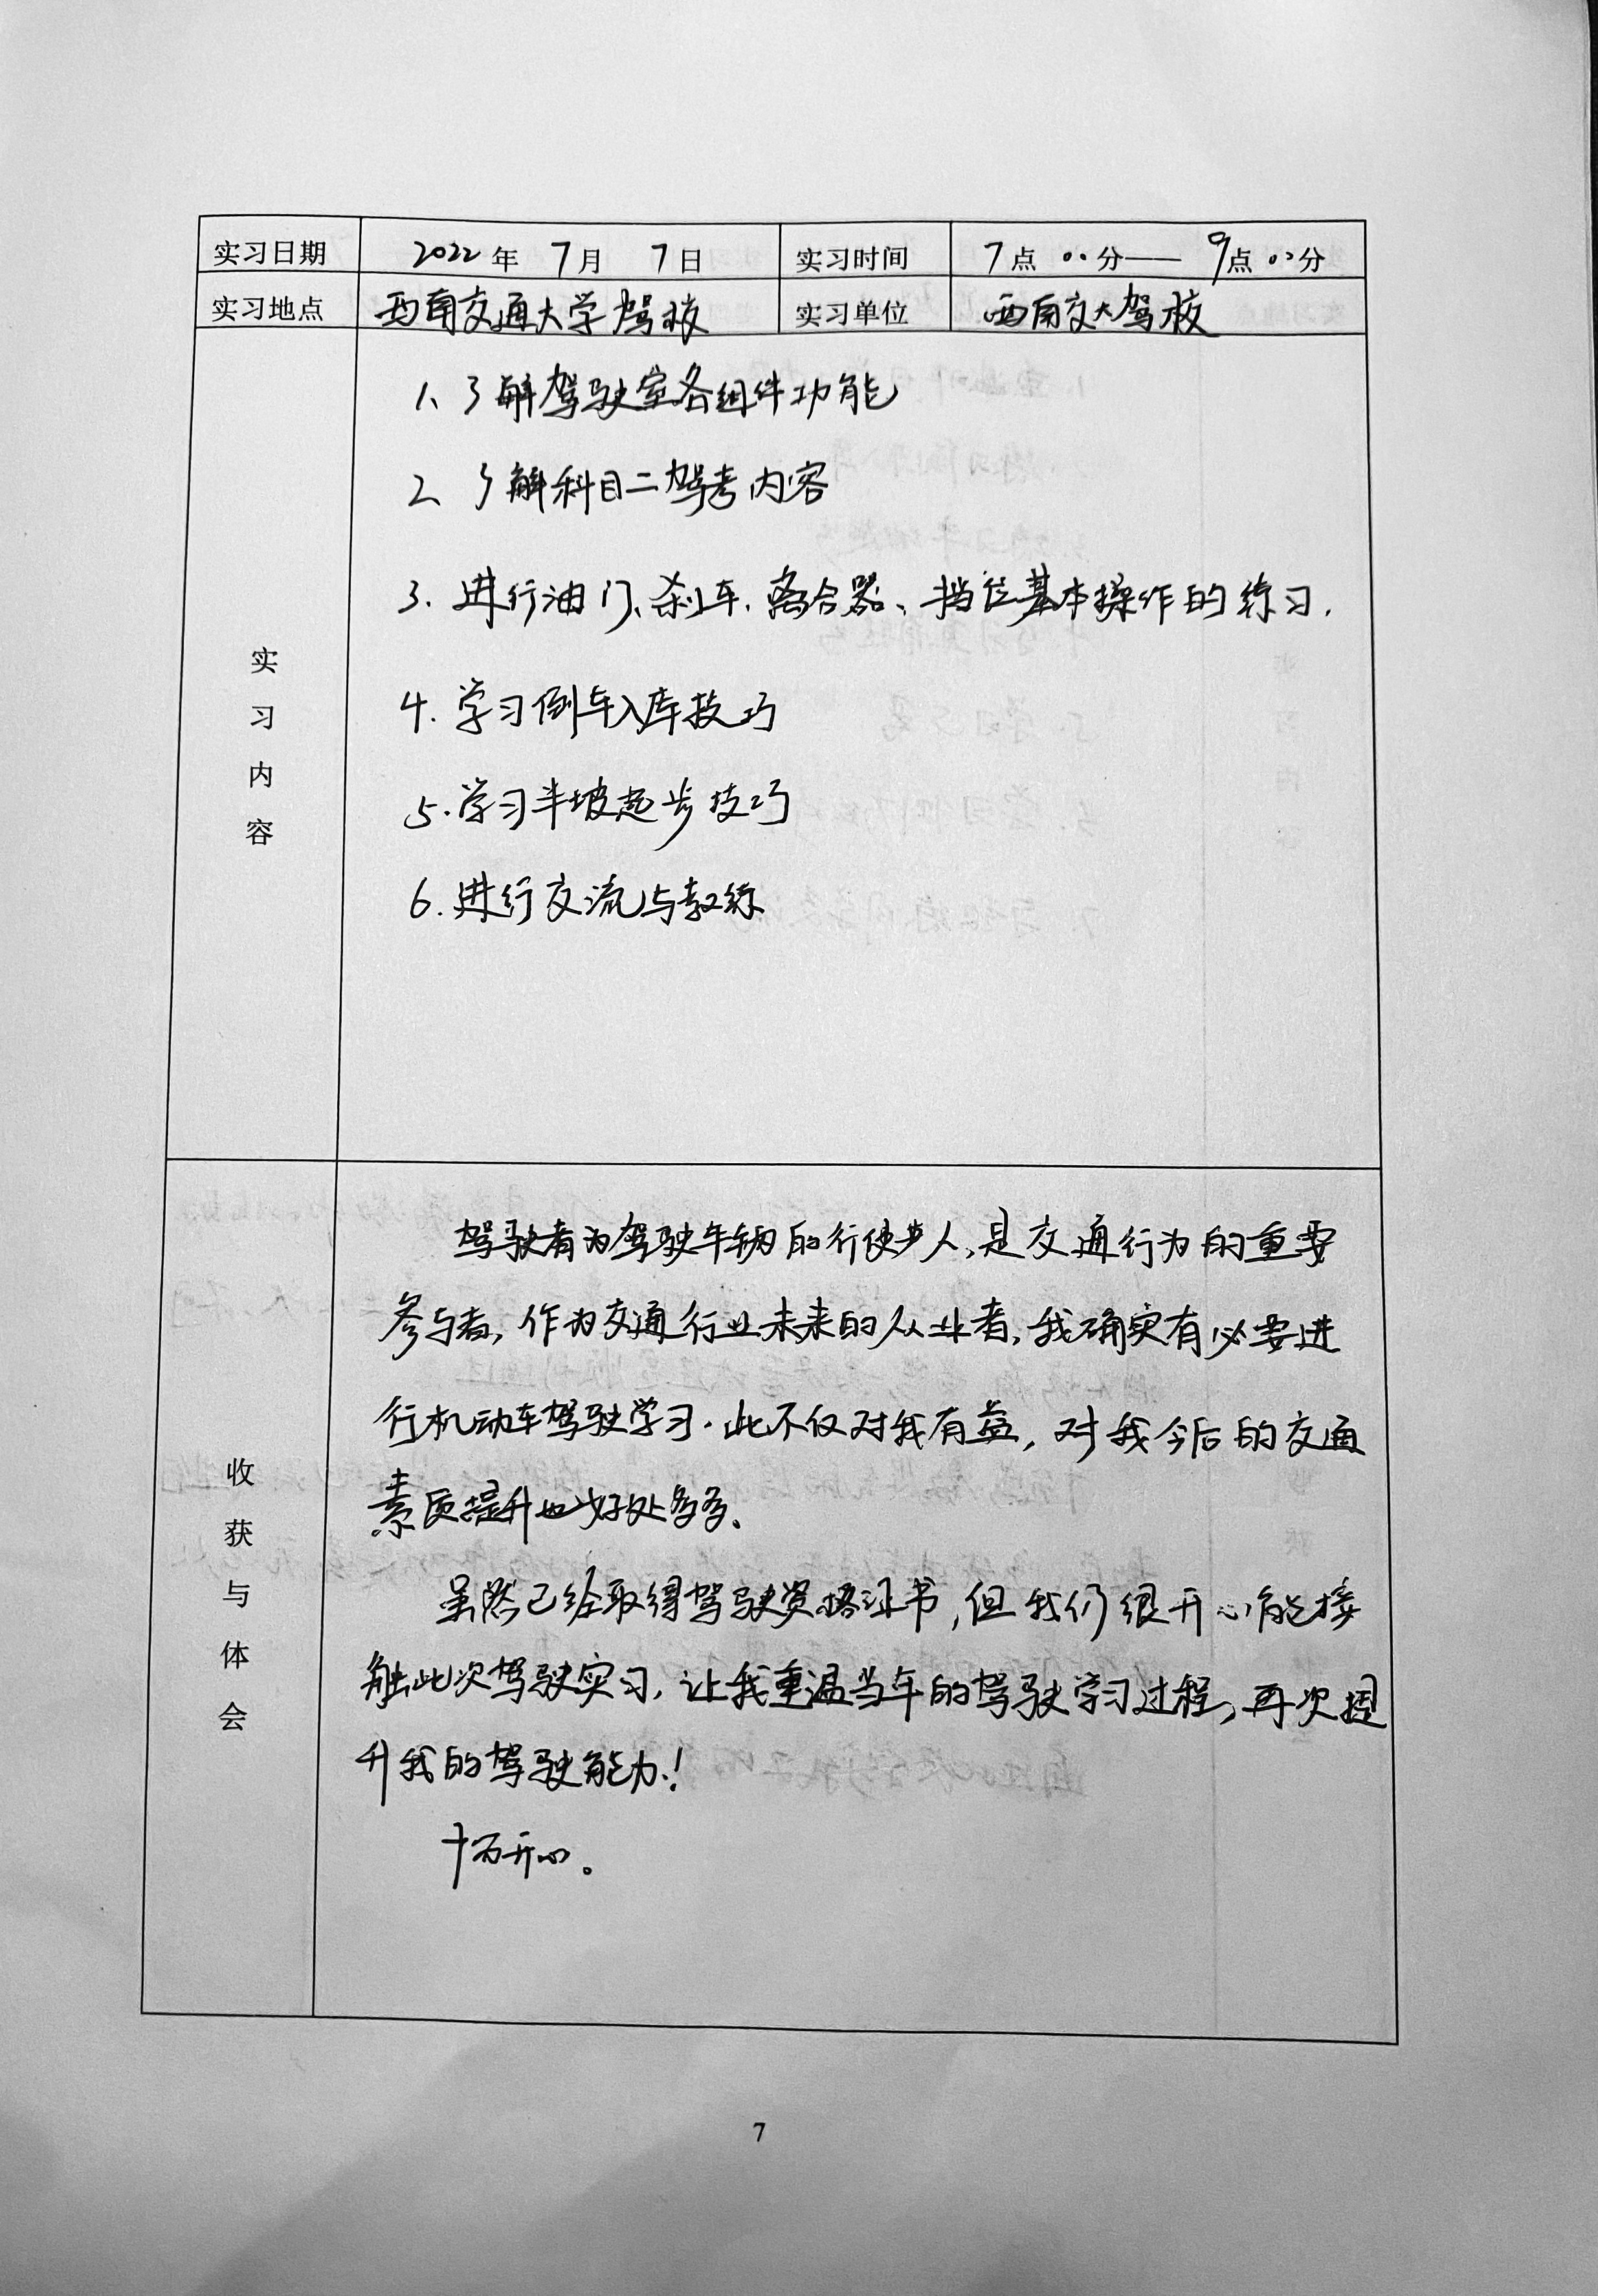 实习日期 2022年 7月 7日 实习时间 7点00分——9点00分
实习地点 西南交通大学驾校 实习单位 西南交大驾校
实习内容
1、了解驾驶室各组件功能
2、了解科目二驾考内容
3.进行油门、刹车、离合器、挡位基本操作的练习.
4.学习倒车入库技巧
5.学习半坡起步技巧
6.进行交流与教练
收获与体会
驾驶者为驾驶车辆的行使步人,是交通行为的重要
参与者,作为交通行业未来的从业者,我确实有必要进
行机动车驾驶学习.此不仅对我有益,对我今后的交通
素质提升也好处多多、
虽然已经取得驾驶资格证书,但我们很开心能接
触此次驾驶实习,让我重温当年的驾驶学习过程,再次提
升我的驾驶能力!
十万开心。
7